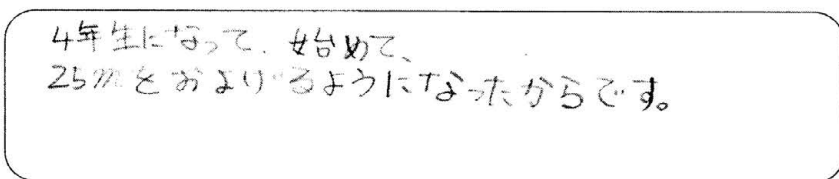 4年生になって、始めて、
25mをおよげるようになったからです。